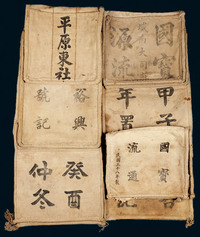 平原東社
國寶
源流
裕興
號記
甲子
年置
癸酉
仲冬
國寶
流通